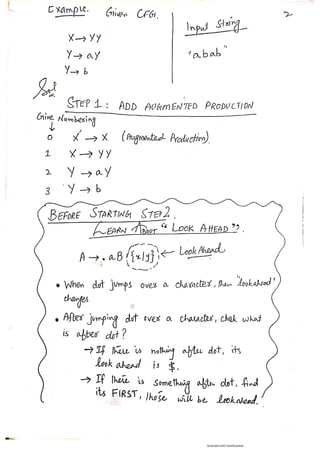 Example. Given CFG. 2
Input String
X → YY
Y → aY "abab"
Y → b
Sol
STEP 1: ADD AUGMENTED PRODUCTION
Give Numbering
↓
0 X' → X (Augmented Production).
1 X → YY
2 Y → aY
3 Y → b
BEFORE STARTING STEP 2.
LEARN ABOUT "LOOK AHEAD".
A → .aB {x|y} ← Look Ahead
• When dot jumps over a character, then "lookahead"
changes
• After jumping dot over a character, check what
is after dot?
→ If there is nothing after dot, its
look ahead is $.
→ If there is something after dot, find
its FIRST, those will be lookahead.
Scanned with CamScanner